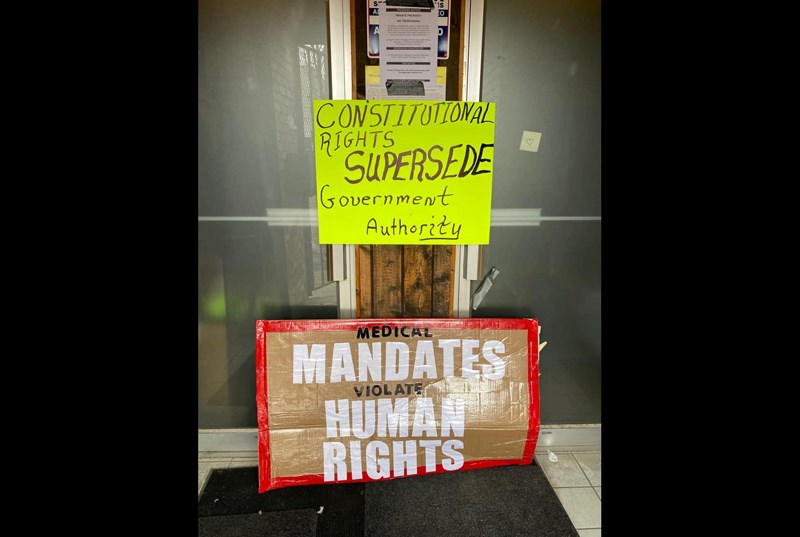 CONSTITUTIONAL
RIGHTS
SUPERSEDE
Government
Authority
MEDICAL
MANDATES
VIOLATE
HUMAN
RIGHTS